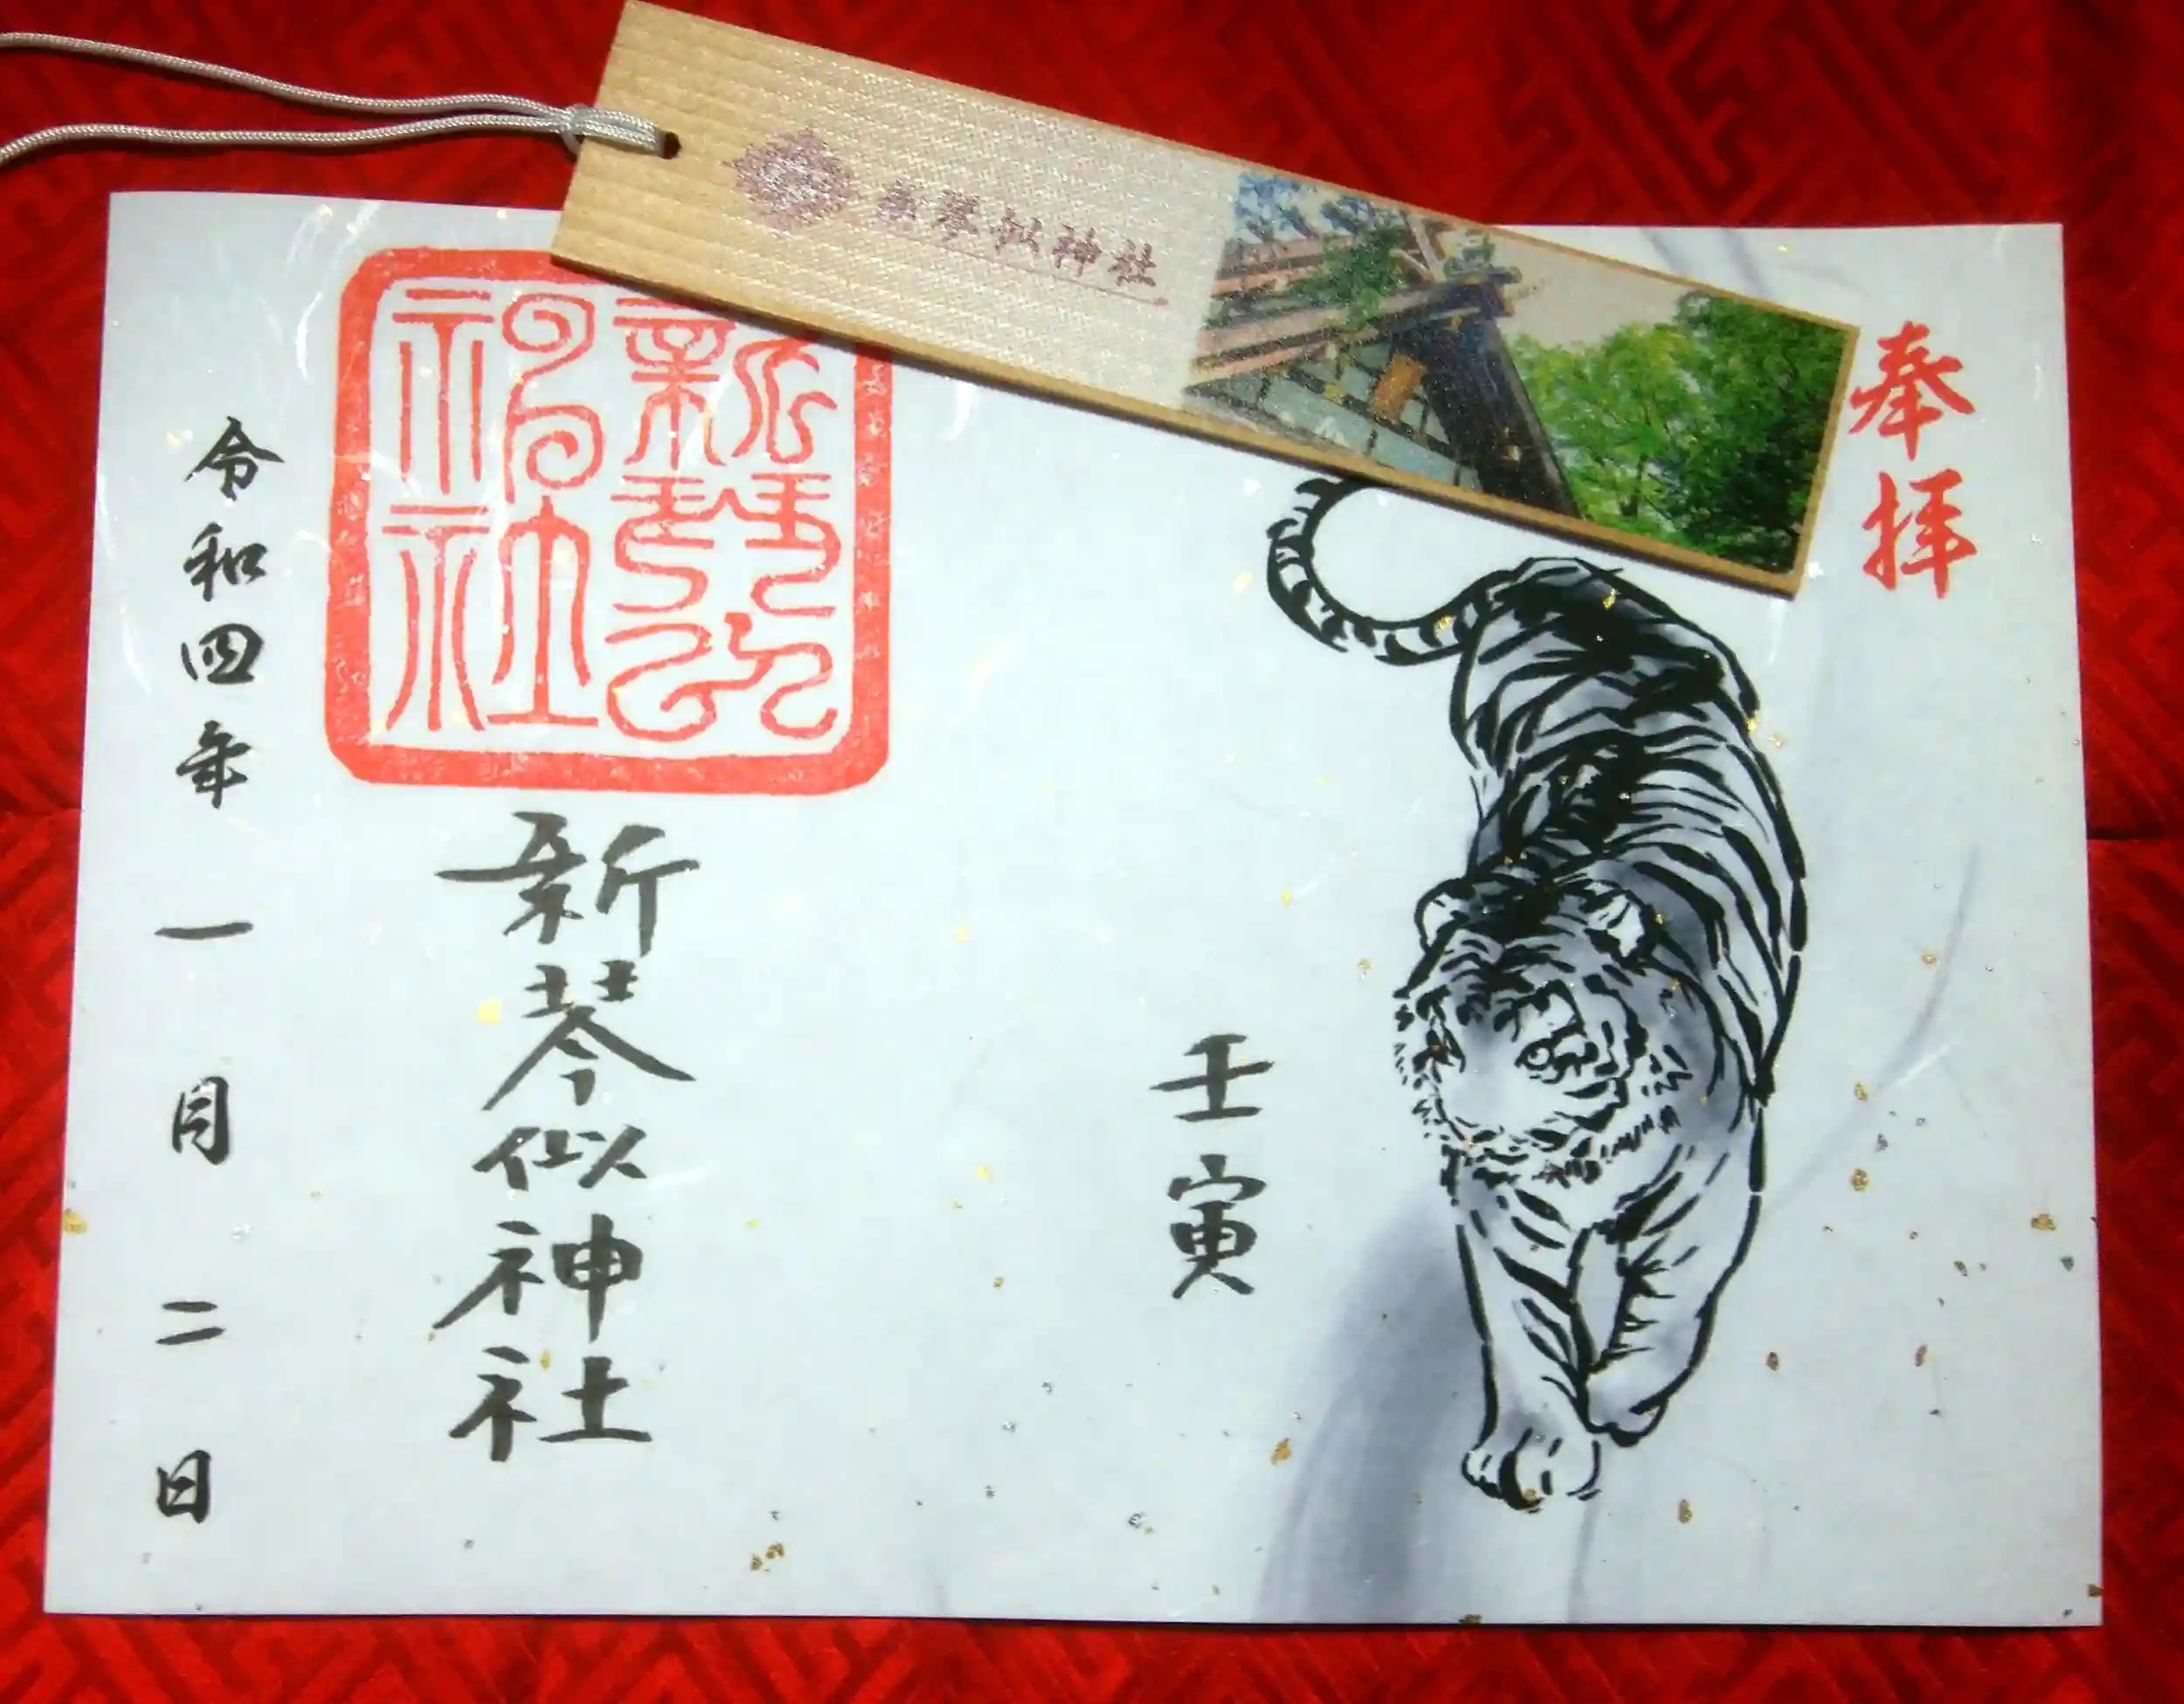 新琴似神社
奉拝
壬寅
新琴似神社
新琴似神社
令和四年一月二日